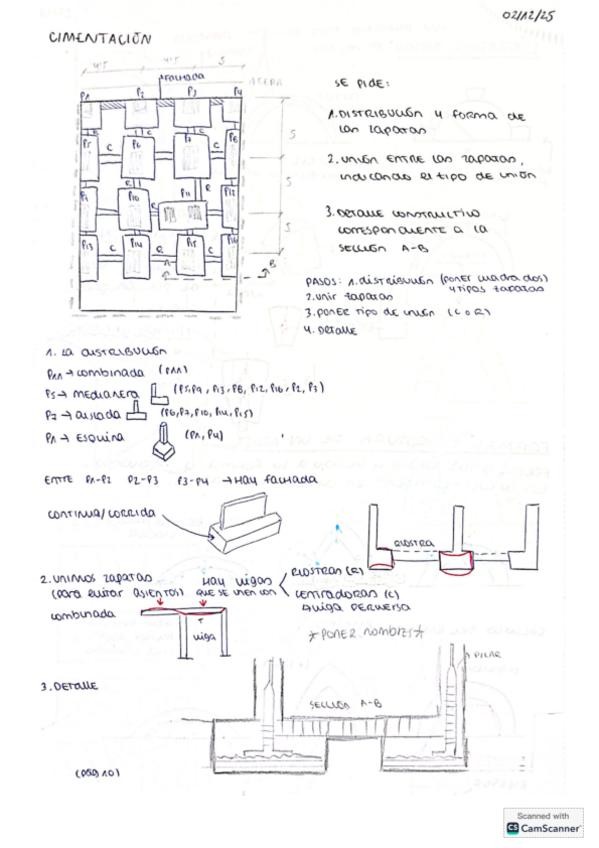 02/12/25
CIMENTACIÓN
4'5 4'5 5
FACHADA
ACERA
P1 P2 P3 P4
C C C
P5 C P6 P7 C P8
5
R R
P9 P10 R P11 P12
5
P13 C P14 C P15 P16
5
A B
SE PIDE:
1. DISTRIBUCIÓN Y FORMA DE
LAS ZAPATAS
2. UNIÓN ENTRE LAS ZAPATAS,
INDICANDO EL TIPO DE UNIÓN
3. DETALLE CONSTRUCTIVO
CORRESPONDIENTE A LA
SECCIÓN A-B
PASOS: 1. DISTRIBUCIÓN (PONER CUADRADOS)
4 TIPOS ZAPATAS
2. UNIR ZAPATAS
3. PONER TIPO DE UNIÓN (C O R)
4. DETALLE
1. LA DISTRIBUCIÓN
P11 → COMBINADA (P11)
P5 → MEDIANERA (P5, P9, P13, P8, P12, P16, P2, P3)
P7 → AISLADA (P6, P7, P10, P14, P15)
P1 → ESQUINA (P1, P4)
ENTRE P1-P2 P2-P3 P3-P4 → HAY FACHADA
CONTINUA/CORRIDA
RIOSTRA
2. UNIMOS ZAPATAS
(PARA EVITAR ASIENTOS)
HAY VIGAS
QUE SE UNEN CON
RIOSTRAS (R)
CENTRADORAS (C)
COMBINADA
VIGA
*PONER NOMBRES*
3. DETALLE
SECCIÓN A-B
PILAR
(PÁG 10)
Scanned with
CS CamScanner